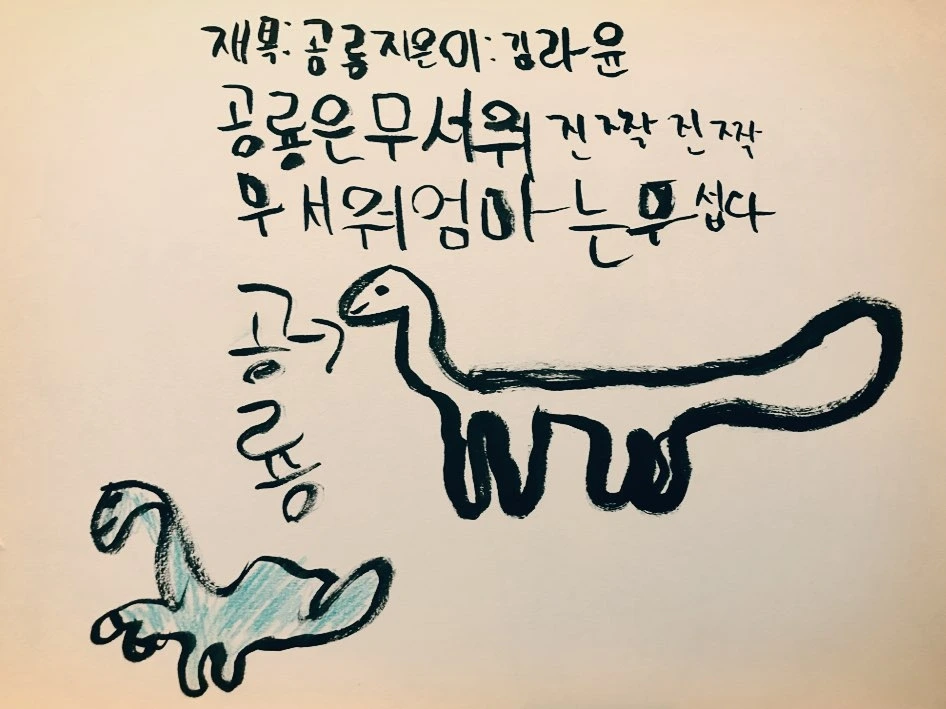 재목: 공룡 지은이: 김라윤
공룡은 무서워 진짜 진짝
무서워 엄마는 무섭다
공
룡